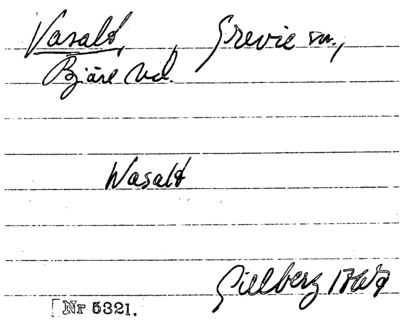 Vasalt, Grevie sn.,
Bjäre hd.
Wasalt
Gillberg 1767
Nr 5321.